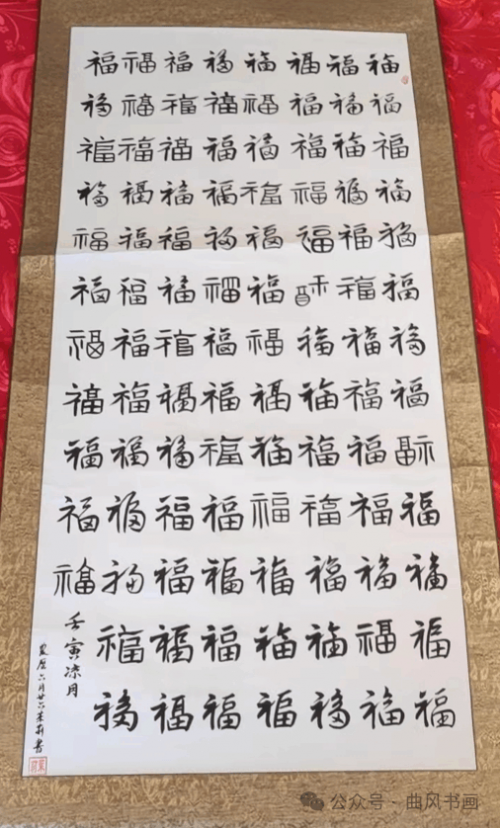 福福福福福福福福
福福福福福福福福
福福福福福福福福
福福福福福福福福
福福福福福福福福
福福福福福福福福
福福福福福福福福
福福福福福福福福
福福福福福福福福
福福福福福福福福
福福福福福福福福
福福福福福福福
福福福福福福福
壬寅凉月
農历六月廿六書
公众号·曲风书画